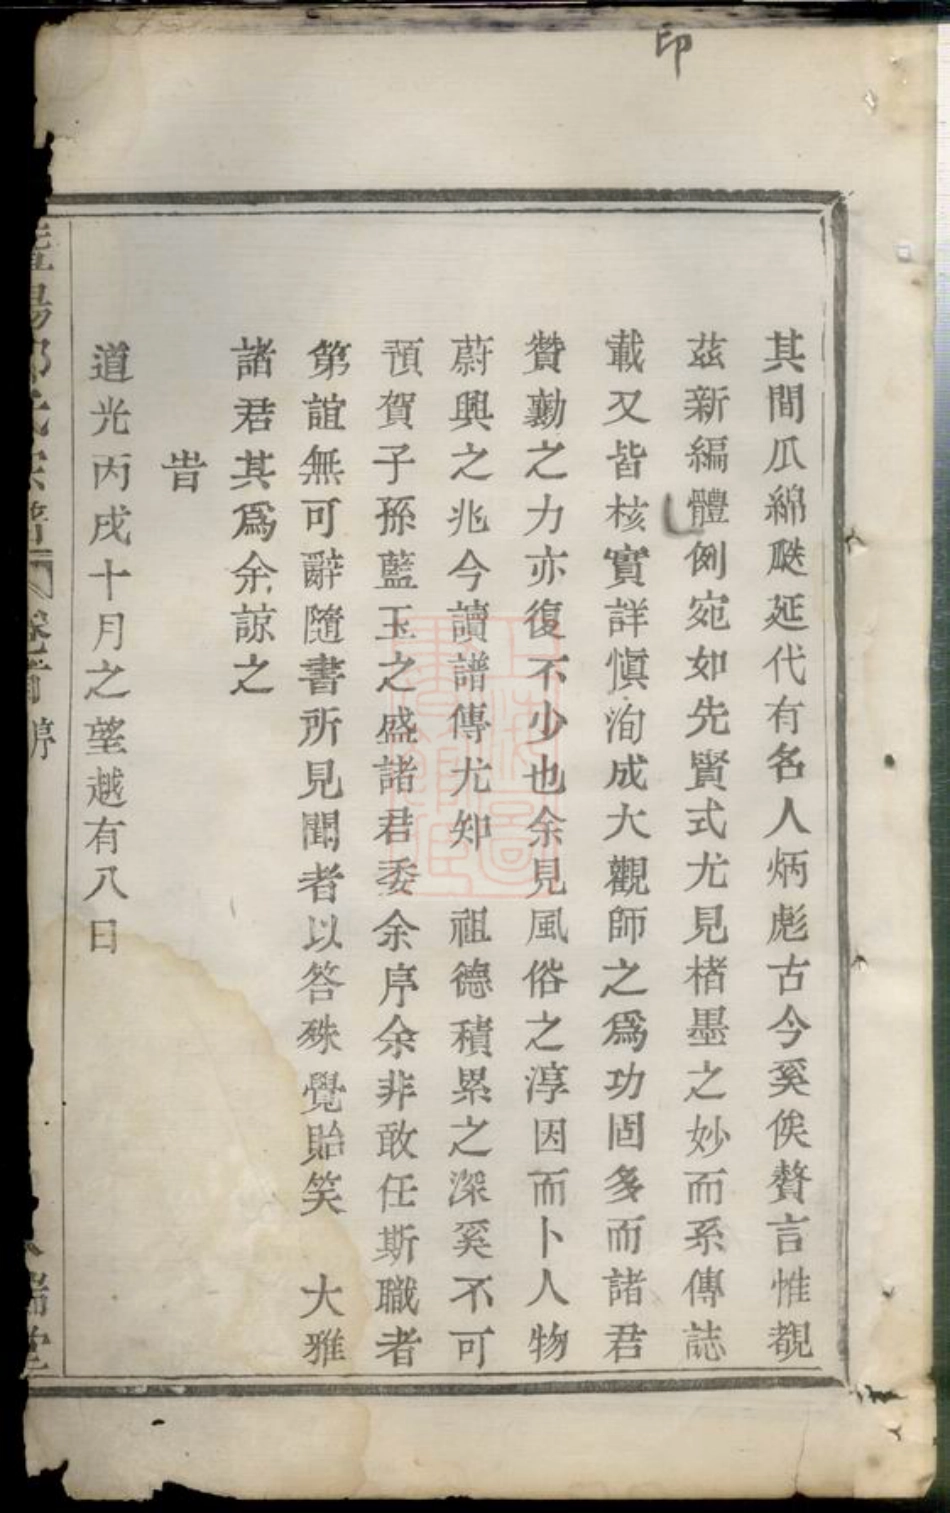 印
其間瓜綿瓞延代有名人炳彪古今奚俟贅言惟覩
茲新編體例宛如先賢式尤見楮墨之妙而系傳誌
載又皆核實詳愼洵成大觀師之爲功固多而諸君
贊勷之力亦復不少也余見風俗之淳因而卜人物
蔚興之兆今讀譜傳尤知 祖德積累之深奚不可
預賀子孫藍玉之盛諸君委余序余非敢任斯職者
第誼無可辭隨書所見聞者以答殊覺貽笑 大雅
諸君其爲余諒之
旹
道光丙戌十月之望越有八日
陽 氏宗譜 卷首 瑞堂